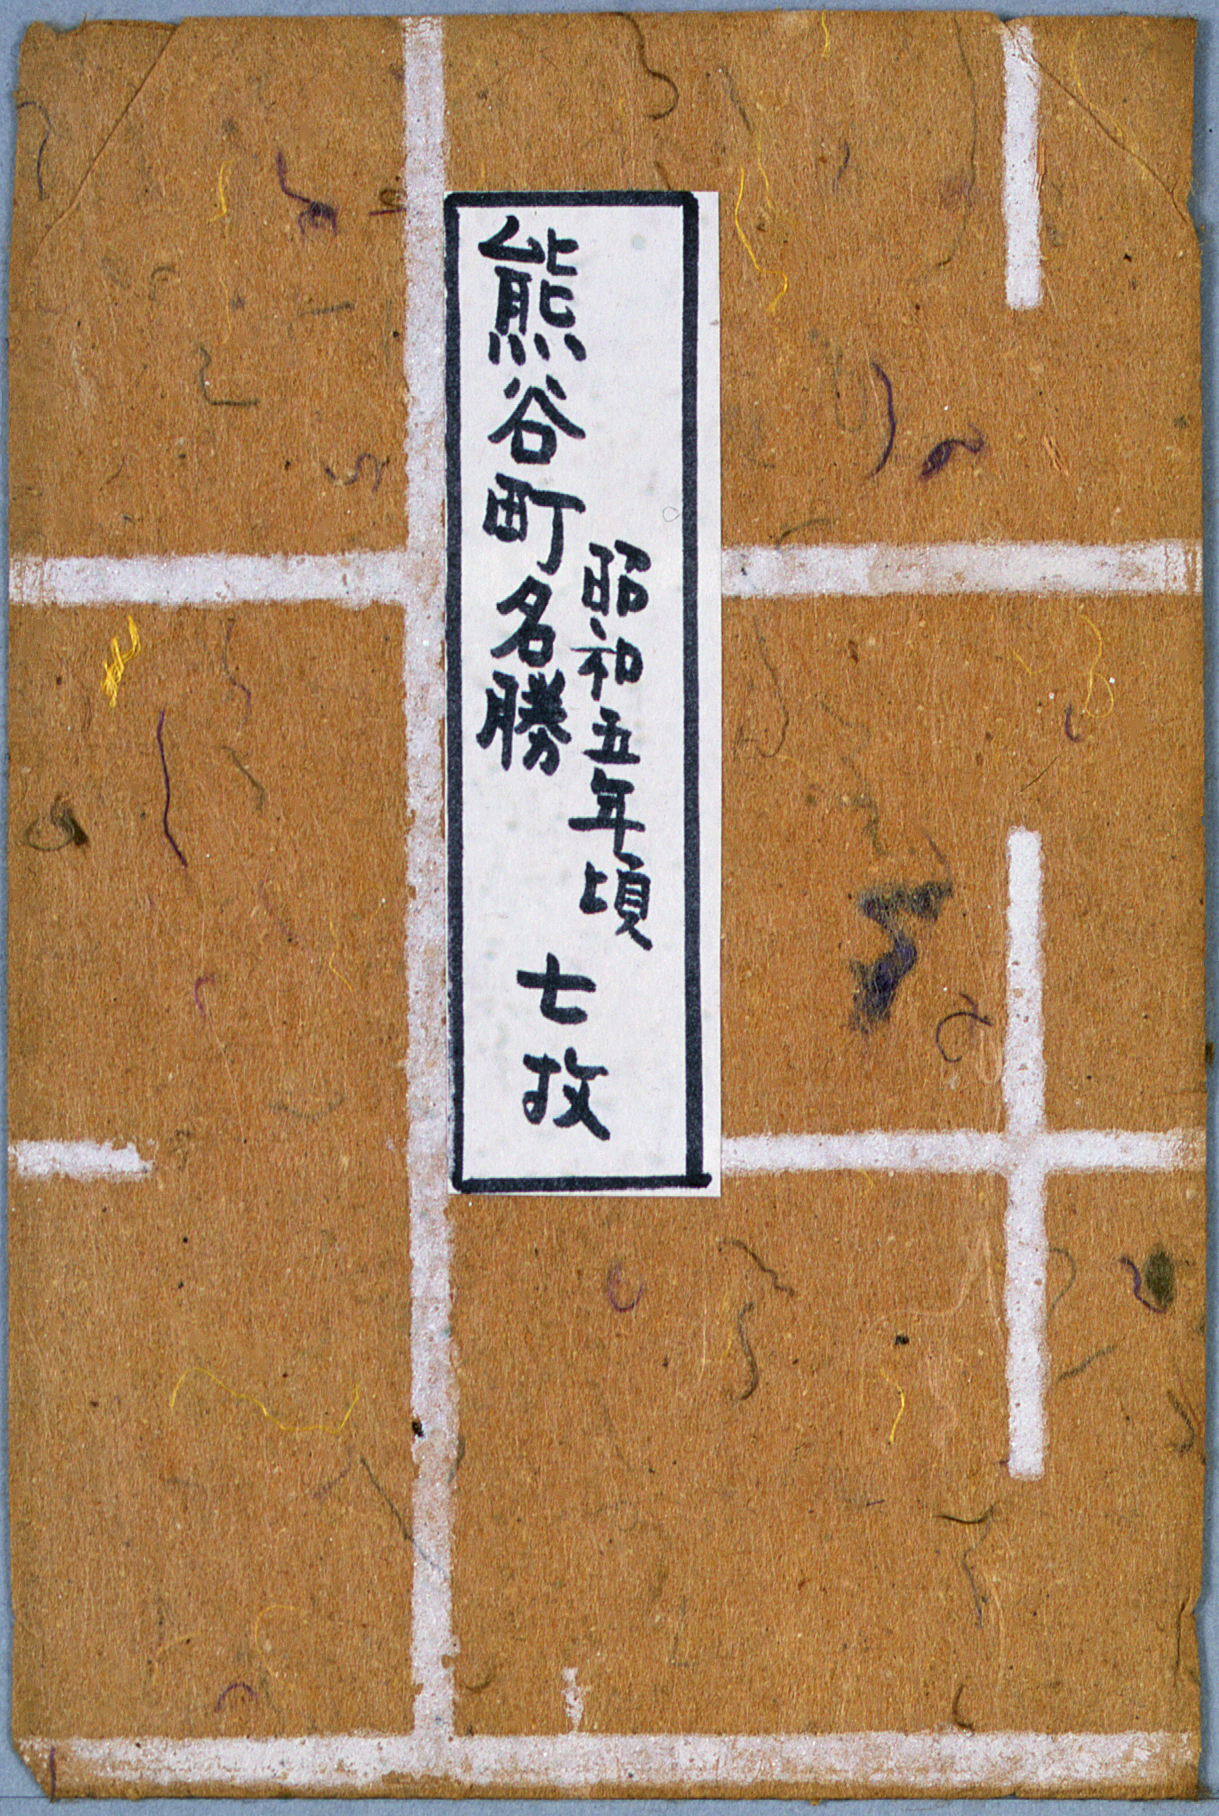 昭和五年頃
熊谷町名勝
七枚